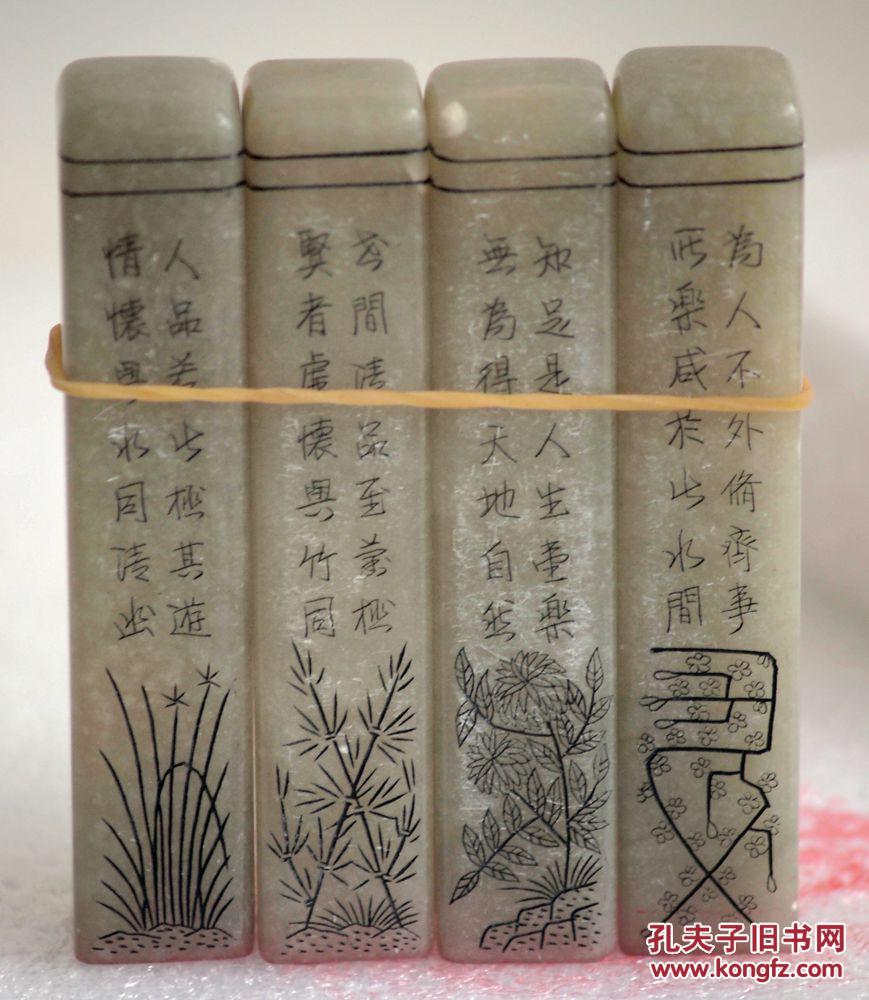 為人不外脩齊事
所樂咸於此水間
知足是人生壹樂
無為得天地自然
世間清品至蘭極
賢者虛懷與竹同
人品若此極其遊
情懷與水同清幽
孔夫子旧书网
www.kongfz.com